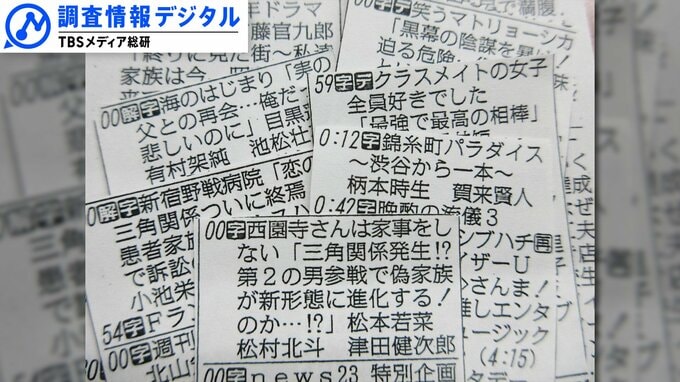 調査情報デジタル
TBSメディア総研
年ドラマ
藤官九郎
「終りに見た街~私達
家族は今、戦
00解字海のはじまり「実の
父との再会…俺だっ
悲しいのに」目黒
有村架純 池松壮
00字デ笑うマトリョーシカ
「黒幕の陰謀を暴け!
迫る危険
59字デクラスメイトの女子
全員好きでした
「最強で最高の相棒」
0:12字錦糸町パラダイス
~渋谷から一本~
柄本時生 賀来賢人
0:42字晩酌の流儀3
解字新宿野戦病院「恋の
三角関係ついに終焉
患者家族
で訴訟
小池栄
54字Fラン
00字週刊
北山
00字西園寺さんは家事をし
ない「三角関係発生!?
第2の男参戦で偽家族
が新形態に進化する!
のか…!?」松本若菜
松村北斗 津田健次郎
00字news23 特別企画
ンプハチ
イザーU
さんま!
推しエンタ
ュージック
(4:15)